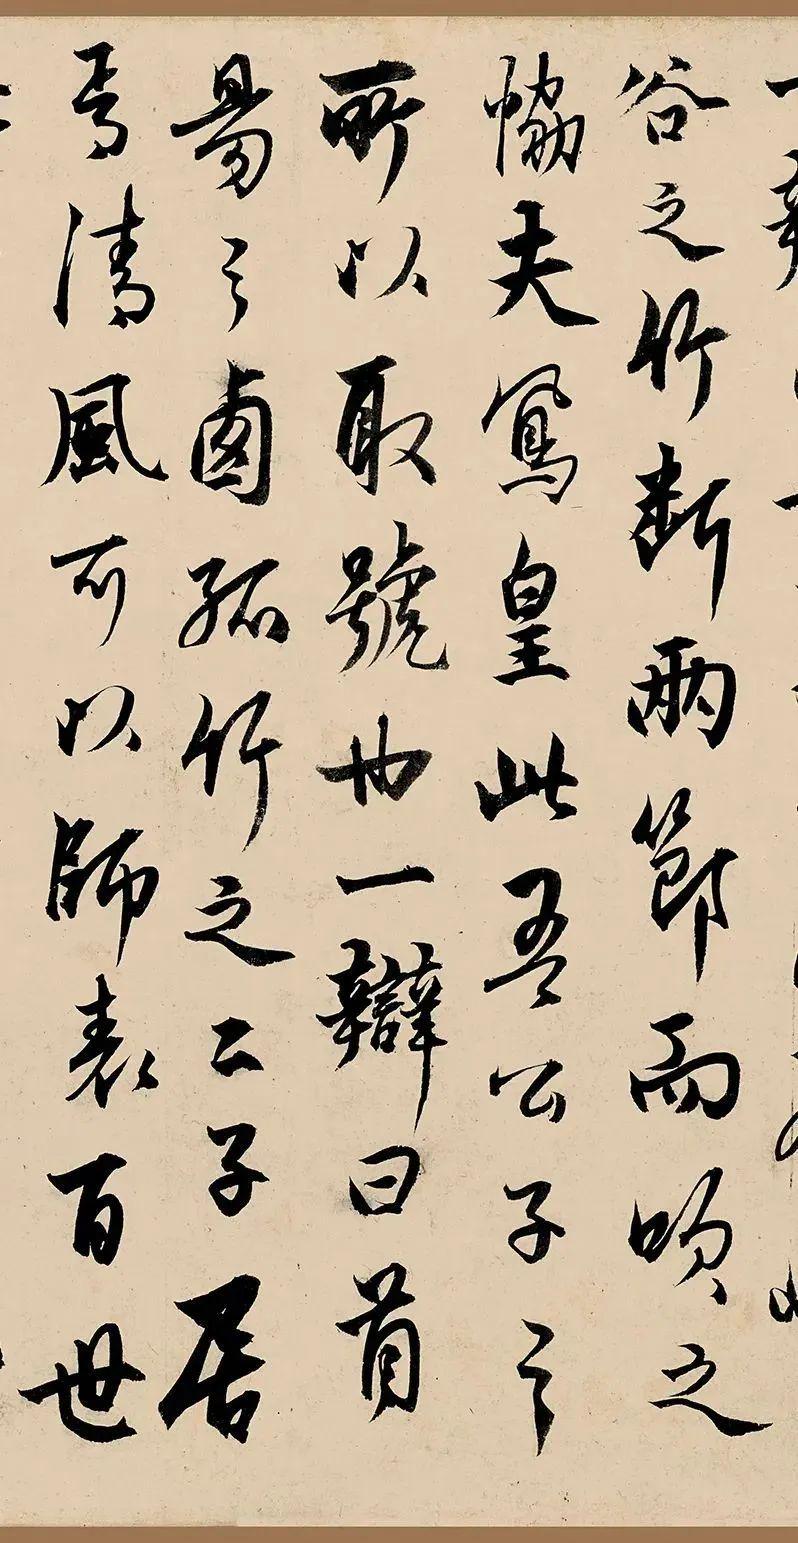 谷之竹断兩節而吹之
恊夫鳳皇此吾公子之
所以取號也一辯曰首
昜之鹵孤竹之二子居
焉清風可以師表百世